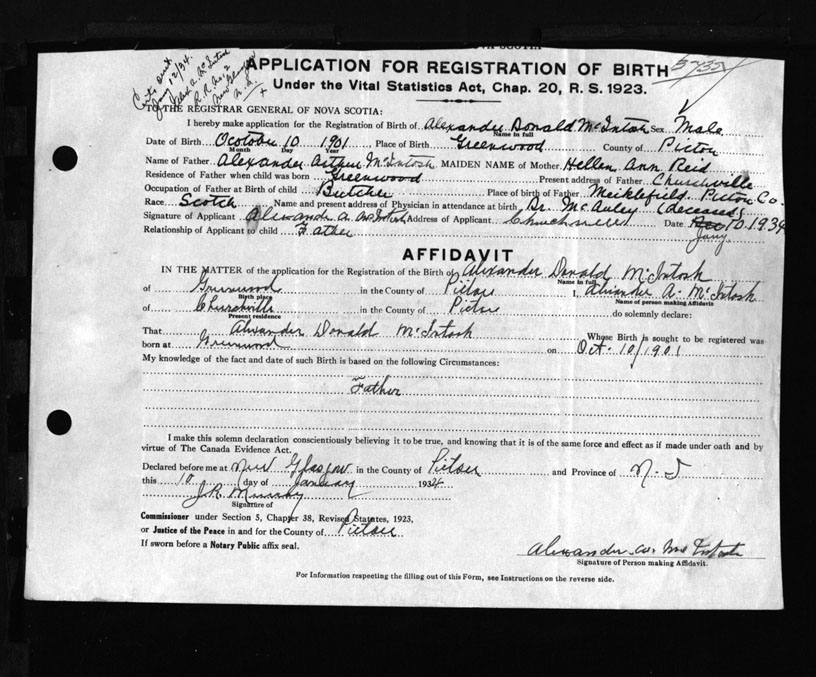 NOVA SCOTIA
Certs sent
Jany 12/34.
Alex. A. McIntosh
R.R. No. 2
New Glasgow
APPLICATION FOR REGISTRATION OF BIRTH
Under the Vital Statistics Act, Chap. 20, R. S. 1923.
TO THE REGISTRAR GENERAL OF NOVA SCOTIA:
I hereby make application for the Registration of Birth of Alexander Donald McIntosh Sex Male
Name in full
Date of Birth Ocotober 10 1901 Place of Birth Greenwood County of Pictou
Month Day Year
Name of Father Alexander Arthur McIntosh MAIDEN NAME of Mother Hellen Ann Reid
Residence of Father when child was born Greenwood Present address of Father Churchville
Occupation of Father at Birth of child Butcher Place of birth of Father Meiklefield Pictou Co.
Race Scotch Name and present address of Physician in attendance at birth Dr. McAuley (deceased)
Signature of Applicant Alexander A. McIntosh Address of Applicant Churchville Date Dec 10 1934
Jany.
Relationship of Applicant to child Father
AFFIDAVIT
IN THE MATTER of the application for the Registration of the Birth of Alexander Donald McIntosh
Name in full
of Greenwood in the County of Pictou I, Alexander A. McIntosh
Birth place Name of person making Affidavit
of Churchville in the County of Pictou do solemnly declare:
Present residence
That Alexander Donald McIntosh Whose Birth is sought to be registered was
born at Greenwood on Oct. 10/1901
My knowledge of the fact and date of such Birth is based on the following Circumstances:
Father
I make this solemn declaration conscientiously believing it to be true, and knowing that it is of the same force and effect as if made under oath and by
virtue of The Canada Evidence Act.
Declared before me at New Glasgow in the County of Pictou and Province of N. S
this 10 day of January 1934
J. R. Murray
Signature of
Commissioner under Section 5, Chapter 38, Revised Statutes, 1923,
or Justice of the Peace in and for the County of Pictou
If sworn before a Notary Public affix seal.
Alexander A. McIntosh
Signature of Person making Affidavit.
For Information respecting the filling out of this Form, see Instructions on the reverse side.